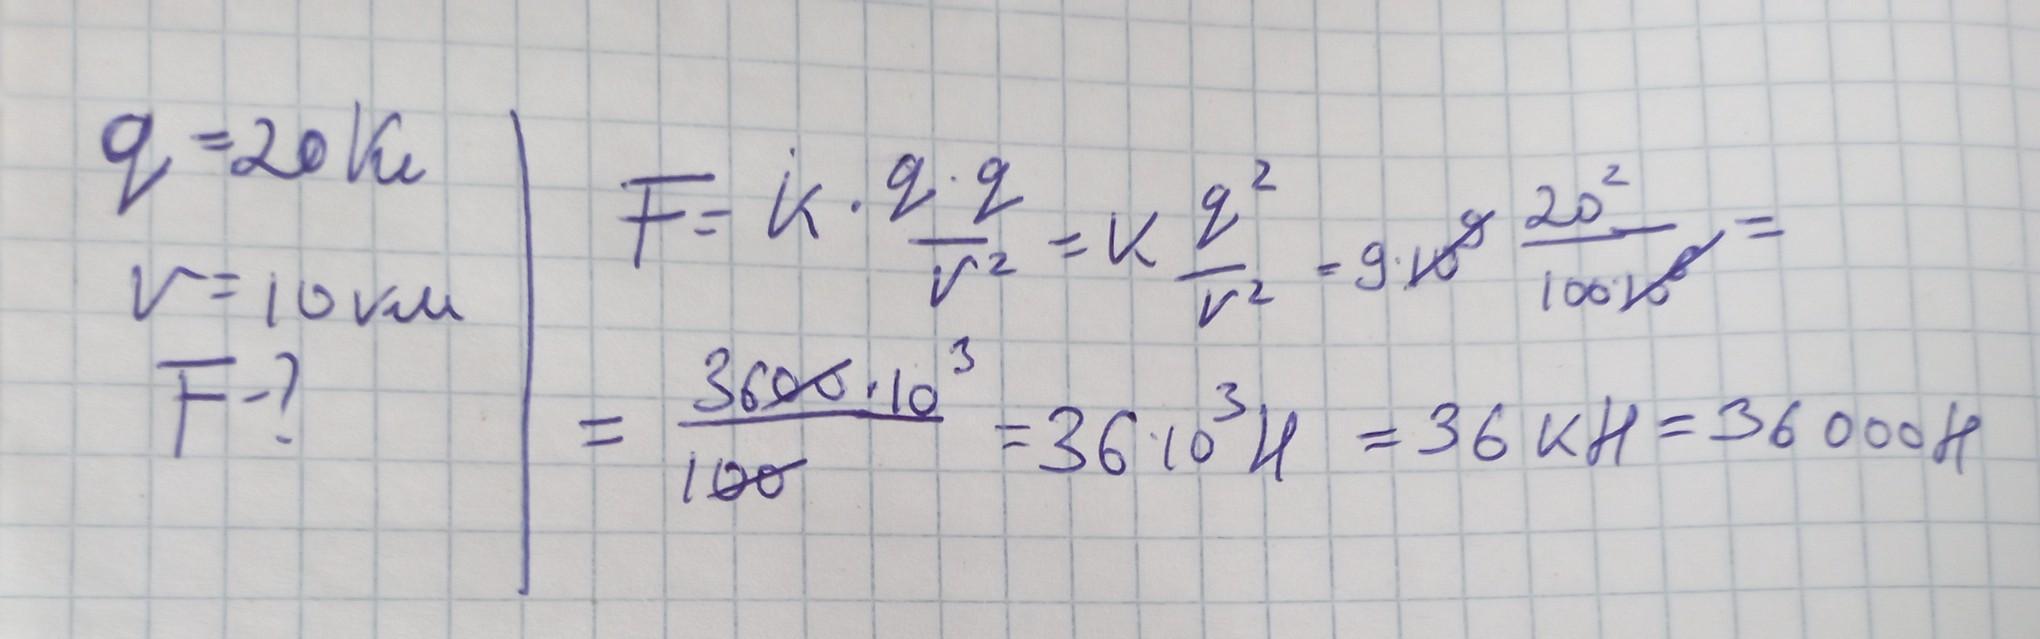 q = 20 Кл
r = 10 км
F - ?
F = k · q · q / r² = k q² / r² = 9 · 10⁹ 20² / 100 · 10⁶ =
= 3600 · 10³ / 100 = 36 · 10³ Н = 36 кН = 36 000 Н